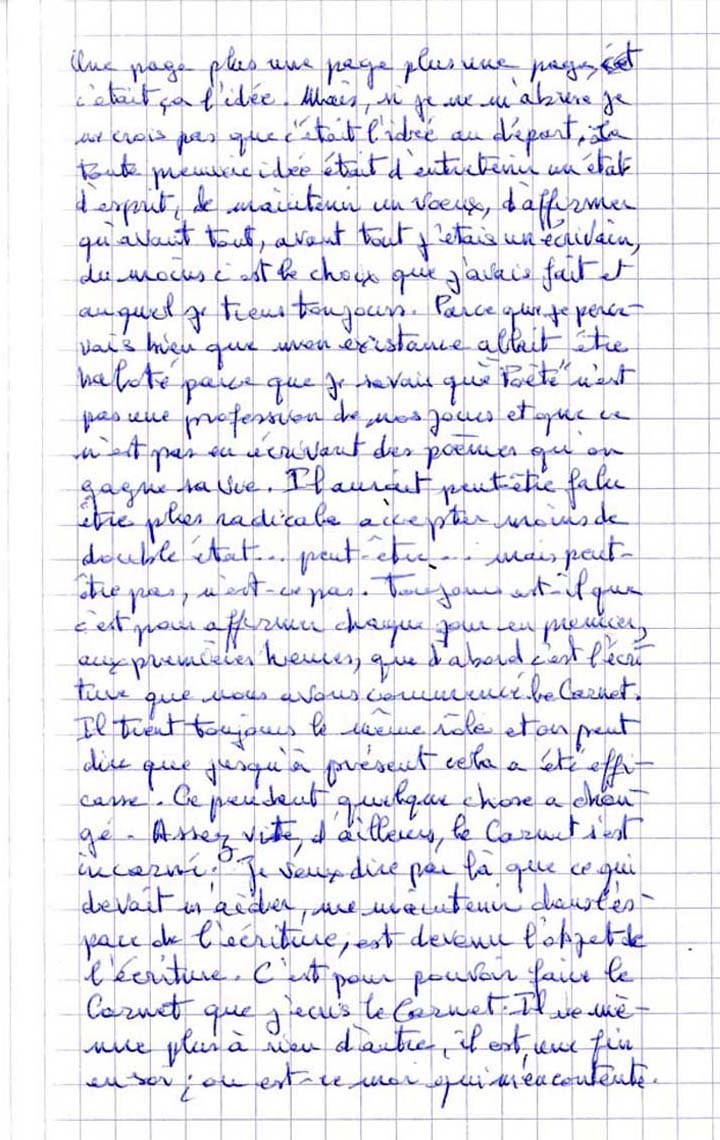 Une page plus une page plus une page, et
c'était ça l'idée. Mais, si je ne m'abuse je
ne crois pas que c'était l'idée au départ. La
toute première idée était d'entretenir un état
d'esprit, de maintenir un voeux, d'affirmer
qu'avant tout, avant tout j'étais un écrivain,
du moins c'est le choix que j'avais fait et
auquel je tiens toujours. Parce que je perce-
vais bien que mon existance allait être
baloté parce que je savais que "Poète" n'est
pas une profession de nos jours et que ce
n'est pas en écrivant des poèmes qu'on
gagne sa vie. Il aurait peut-être falu
être plus radicale accepter moins de
double état... peut-être... mais peut-
être pas, n'est-ce pas. Toujours est-il que
c'est pour affirmer chaque jour en premier,
aux premières heures, que d'abord c'est l'écri
ture que nous avons commencé le Carnet.
Il tient toujours le même rôle et on peut
dire que jusqu'à présent cela a été effi-
casse. Cependant quelque chose a chan-
gé. Assez vite, d'ailleurs, le Carnet s'est
incarné. Je veux dire par là que ce qui
devait m'aider, me maintenir dans l'es-
pace de l'écriture, est devenu l'objet de
l'écriture. C'est pour pouvoir faire le
Carnet que j'écris le Carnet. Il ne mè-
nne plus à rien d'autre, il est une fin
en soi ; ou est-ce moi qui m'en contente.